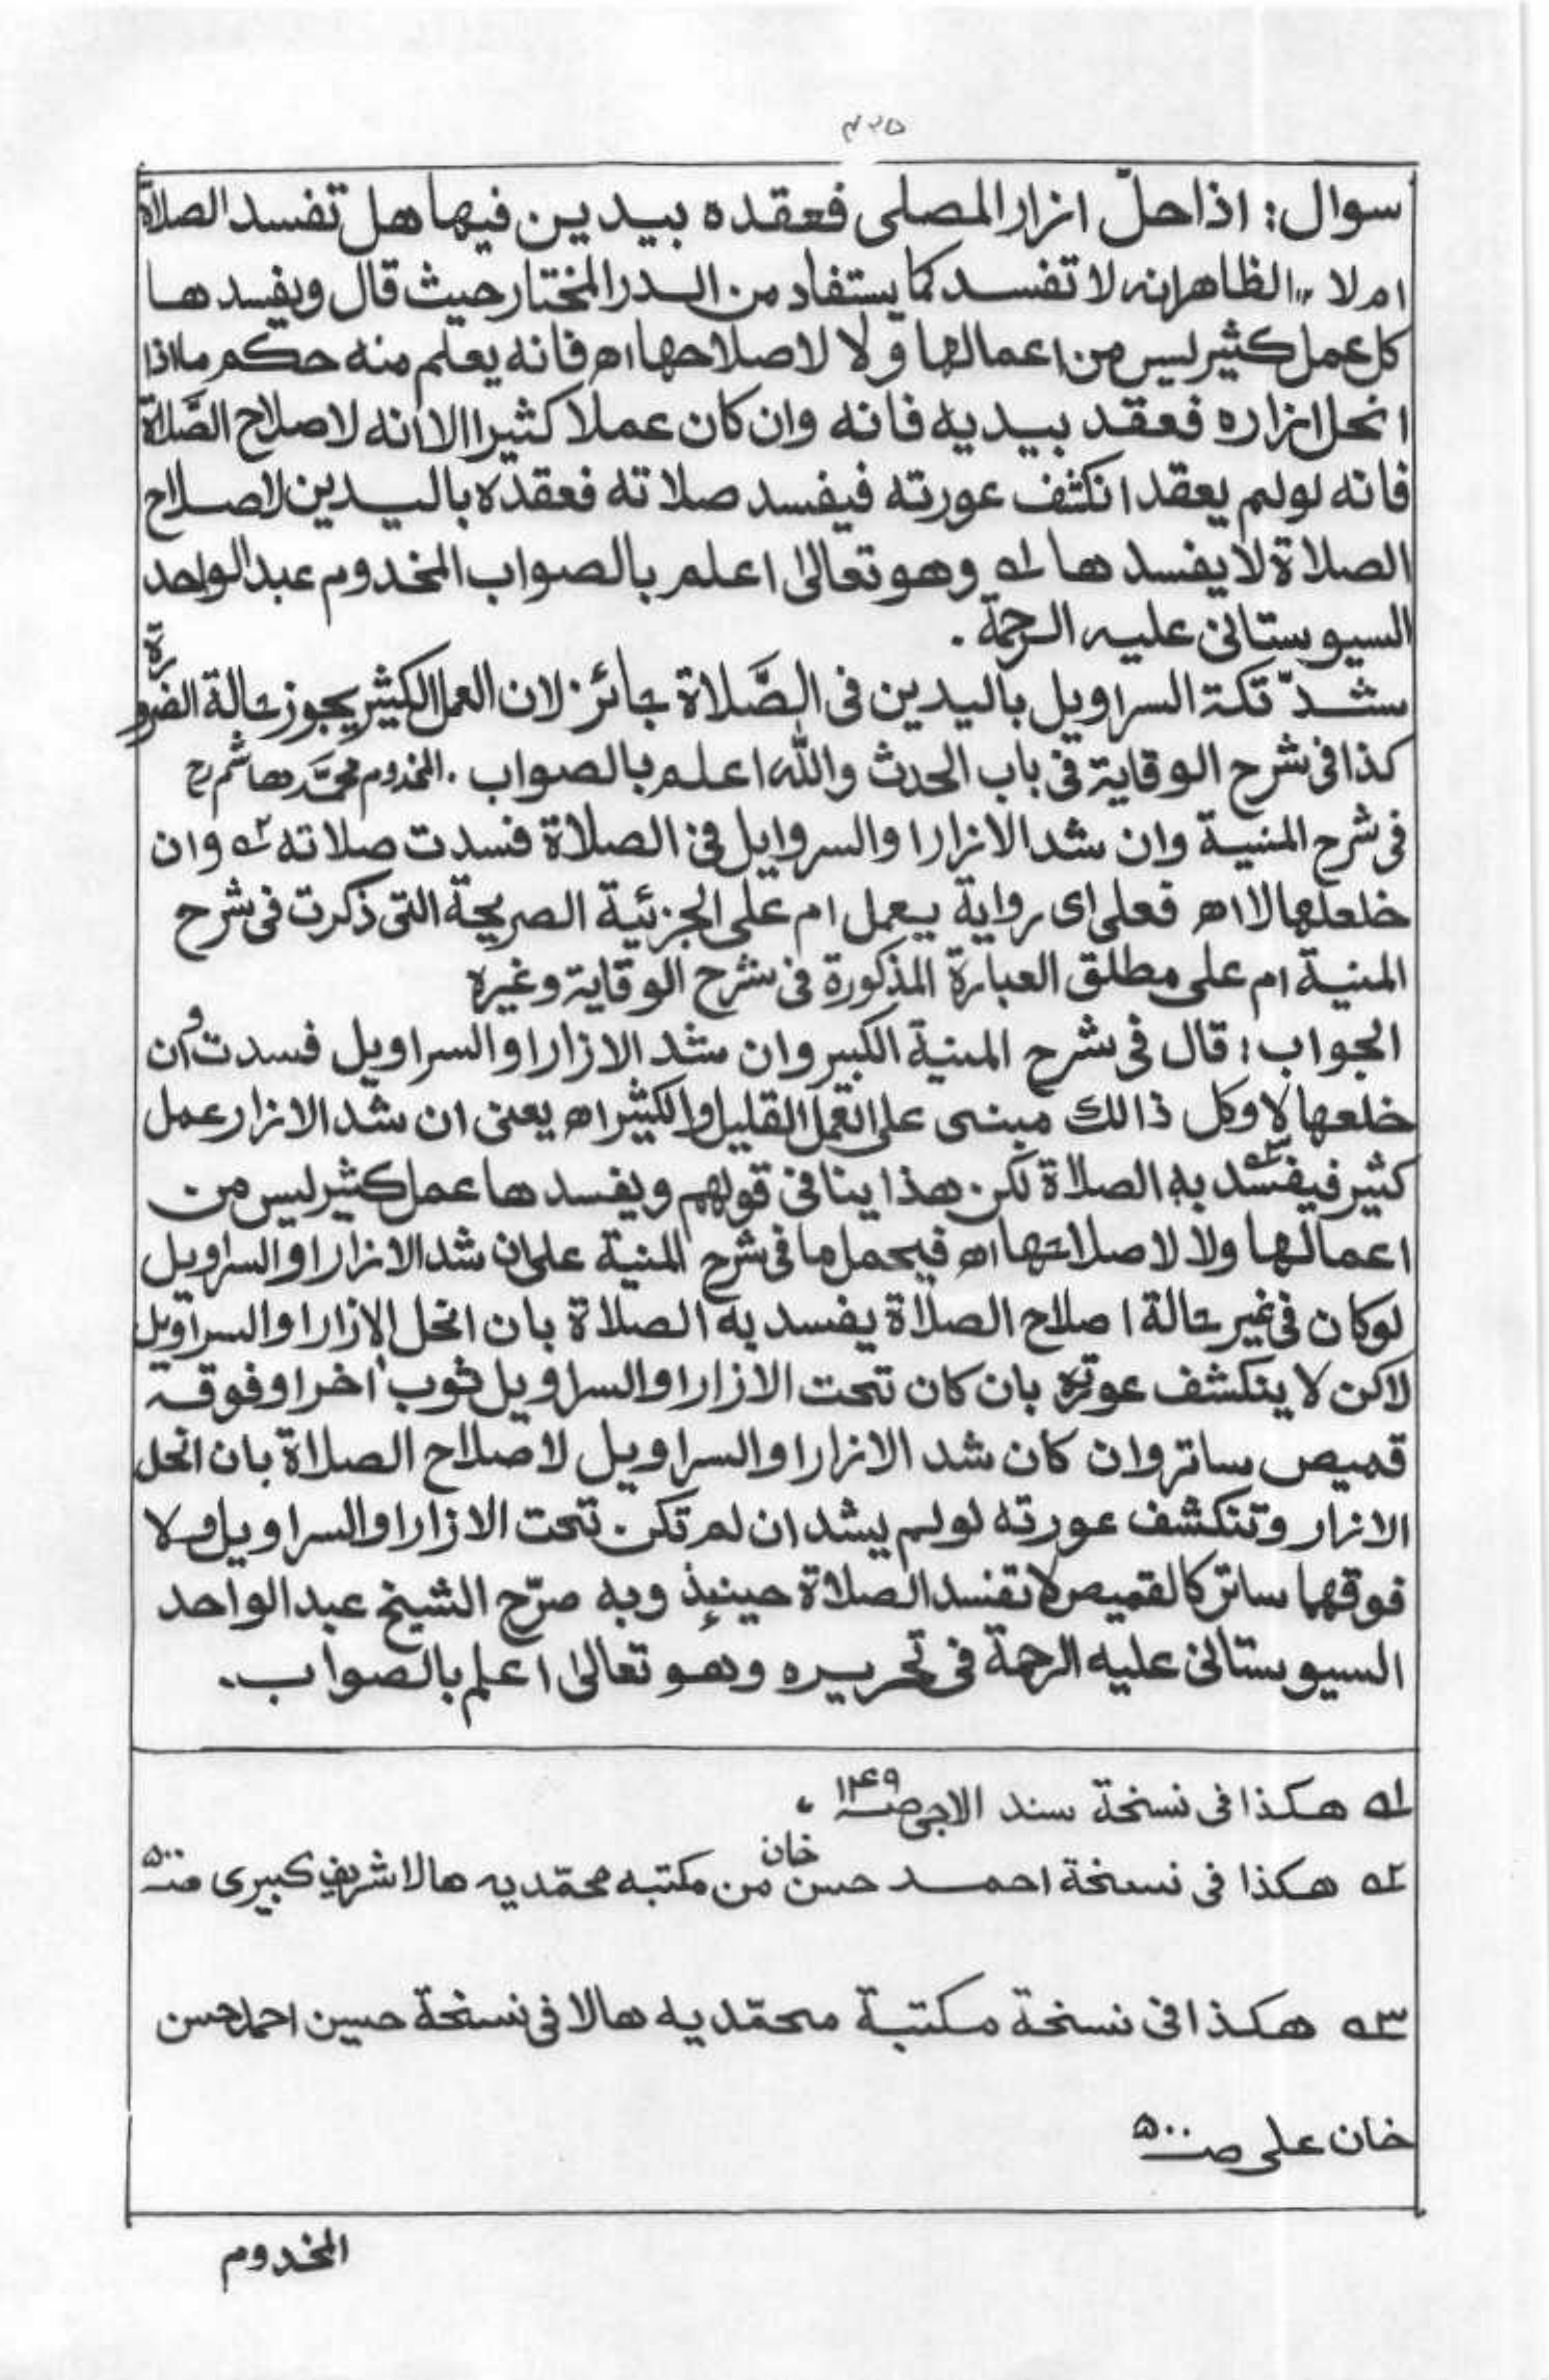 ۴۲۵
سوال: اذا حلّ ازار المصلی فعقده بیدین فیها هل تفسد الصلاة
ام لا ،، الظاهر انه لا تفسد کما یستفاد من الدر المختار حیث قال ویفسدها
کل عمل کثیر لیس من اعمالها ولا لاصلاحها اه فانه یعلم منه حکم ما اذا
انحل ازاره فعقد بیدیه فانه وان کان عملا کثیرا الا انه لاصلاح الصَّلاة
فانه لولم یعقد انکشف عورته فیفسد صلاته فعقده بالیدین لاصلاح
الصلاة لا یفسدها ١ه وهو تعالیٰ اعلم بالصواب المخدوم عبد الواحد
السیوستانی علیه الرحمة .
شدّ تکة السراویل بالیدین فی الصَّلاة جائز لان العمل الکثیر یجوز حالة الضرورة
کذا فی شرح الوقایة فی باب الحدث والله اعلم بالصواب . المخدوم محمَّد هاشم رح
فی شرح المنیة وان شد الازار او السروایل فی الصلاة فسدت صلاته ٢ه وان
خلعلهما لا اه فعلی ای روایة یعمل ام علی الجزئیة الصریحة التی ذکرت فی شرح
المنیة ام علی مطلق العبارة المذکورة فی شرح الوقایة وغیره
الجواب: قال فی شرح المنیة الکبیر وان شد الازار او السراویل فسدت وان
خلعها لا وکل ذالك مبنی علی العمل القلیل والکثیر اه یعنی ان شد الازار عمل
کثیر فیفسد به ٣ه الصلاة لکن هذا ینافی قولهم ویفسدها عمل کثیر لیس من
اعمالها ولا لاصلاحها اه فیحمل ما فی شرح المنیة علی ان شد الازار او السراویل
لوکان فی غیر حالة اصلاح الصلاة یفسد به الصلاة بان انحل الازار او السراویل
لاکن لا ینکشف عورته بان کان تحت الازار او السراویل ثوب اخر او فوقه
قمیص ساتر وان کان شد الازار او السراویل لاصلاح الصلاة بان انحل
الازار وتنکشف عورته لولم یشد ان لم تکن تحت الازار او السراویل ولا
فوقهما ساتر کالقمیص لا تفسد الصلاة حینئذ وبه صرّح الشیخ عبد الواحد
السیوستانی علیه الرحمة فی تحریره وهو تعالیٰ اعلم بالصواب.
١ه هکذا فی نسخة سند الاجی صـ ۱۴۹ ،
٢ه هکذا فی نسخة احمد حسن خان من مکتبه محمّدیه هالا شریف کبیری صـ ۵۰۰
٣ه هکذا فی نسخة مکتبة محمّدیه هالا فی نسخة حسین احمد حسن
خان علی صـ ۵۰۰
المخدوم